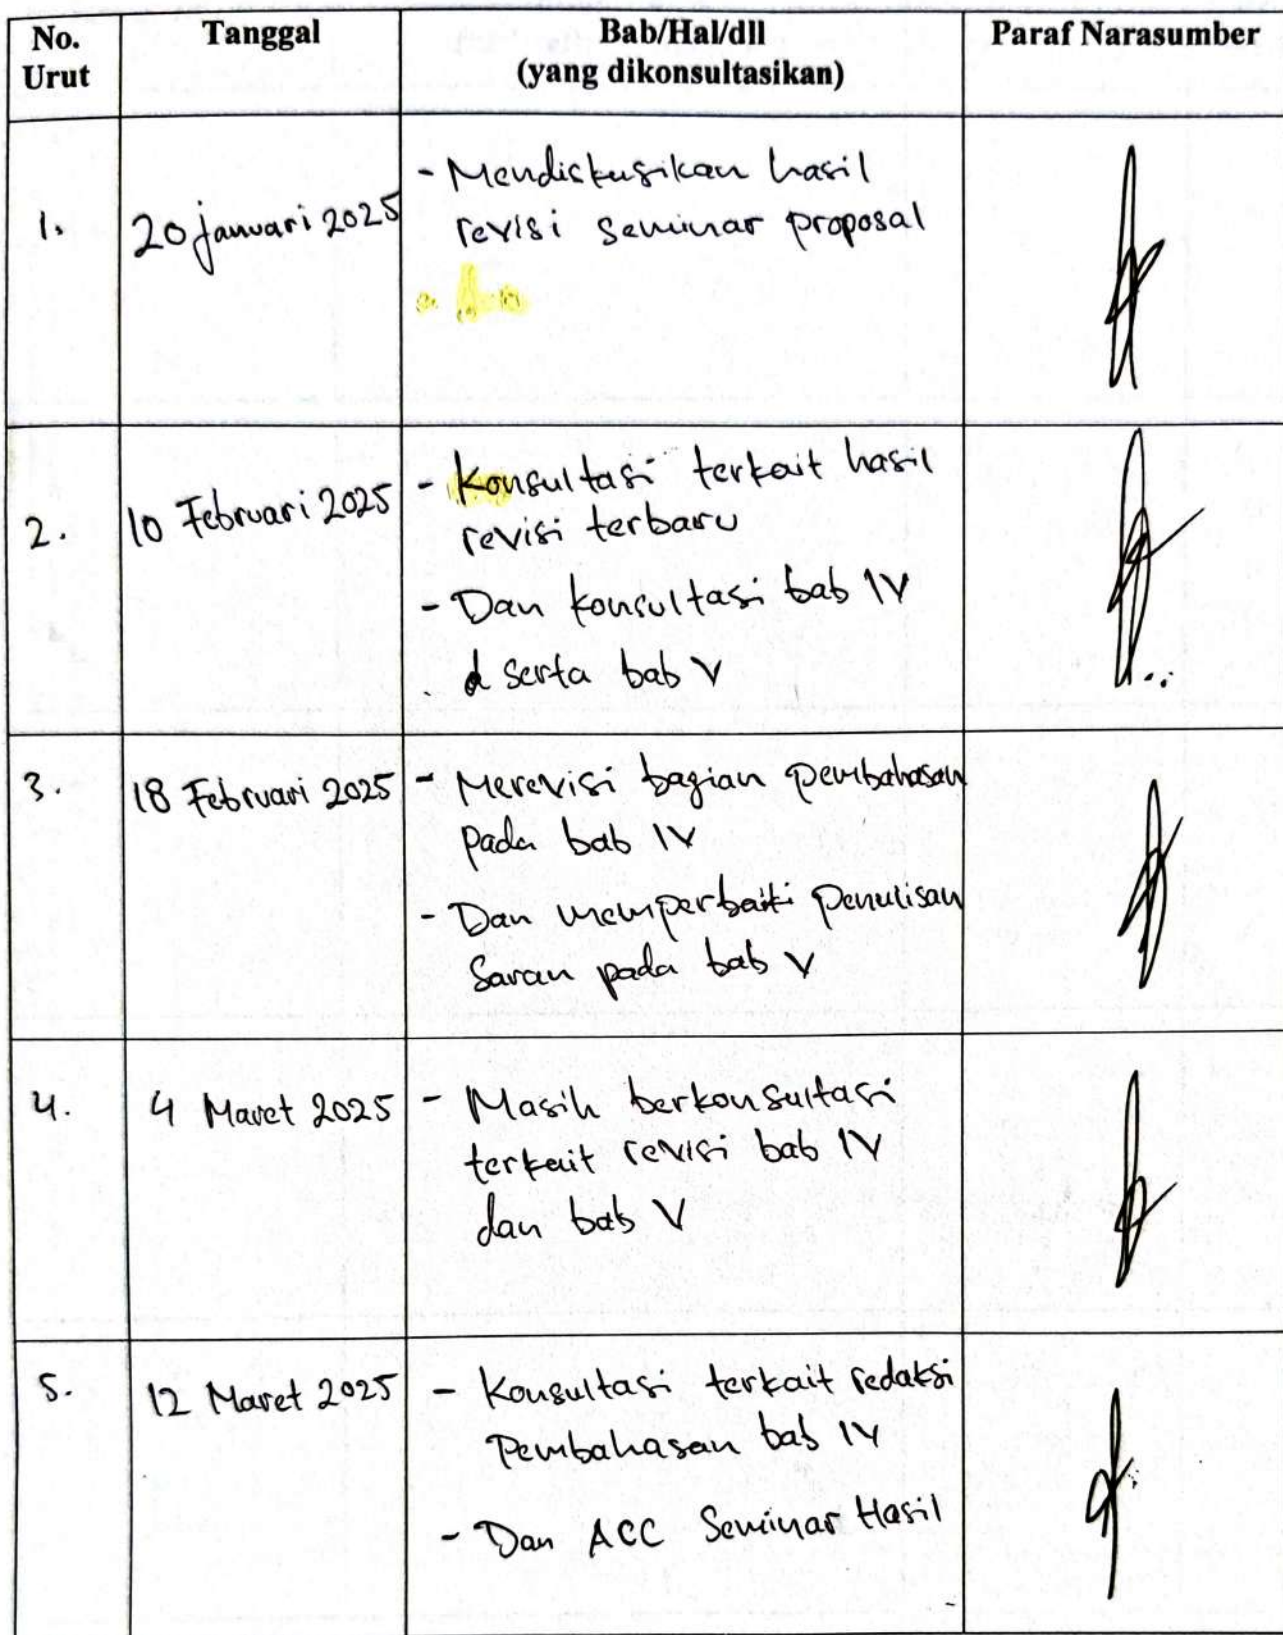 No. Urut
Tanggal
Bab/Hal/dll
(yang dikonsultasikan)
Paraf Narasumber
1.
20 Januari 2025
- Mendiskusikan hasil
revisi seminar proposal
2.
10 Februari 2025
- Konsultasi terkait hasil
revisi terbaru
- Dan konsultasi bab IV
serta bab V
3.
18 Februari 2025
- Merevisi bagian pembahasan
pada bab IV
- Dan memperbaiki penulisan
Saran pada bab V
4.
4 Maret 2025
- Masih berkonsultasi
terkait revisi bab IV
dan bab V
5.
12 Maret 2025
- Konsultasi terkait redaksi
Pembahasan bab IV
- Dan ACC Seminar Hasil